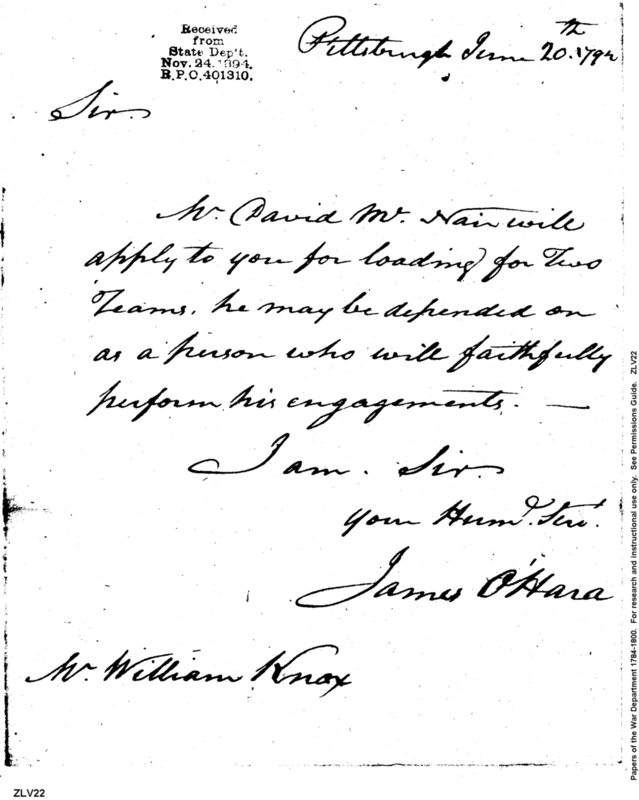 Received
from
State Dep't.
Nov. 24. 1894.
R.P.O. 401310.
Pittsburgh June 20.th 1792
Sir.
Mr. David Mc. Nair will
apply to you for loading for Two
Teams. he may be depended on
as a person who will faithfully
perform his engagements. —
I am. Sir.
your Humd. Servt.
James O'Hara
Mr. William Knox
Papers of the War Department 1784-1800. For research and instructional use only. See Permissions Guide. ZLV22
ZLV22